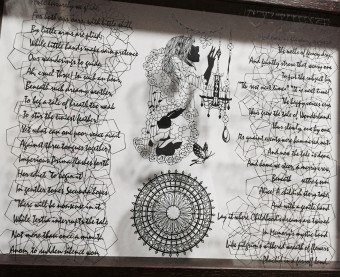 with little skill
By little arms are plied,
While little hands make vain pretence
Our wanderings to guide.
Ah, cruel Three! In such an hour
Beneath such dreamy weather
To beg a tale of breath too weak
To stir the tiniest feather!
Yet what can one poor voice avail
Against three tongues together?
Imperious Prima flashes forth
Her edict "to begin it"
In gentler tones Secunda hopes
"There will be nonsense in it"
While Tertia interrupts the tale
Not more than once a minute.
Anon, to sudden silence won
The wells of fancy dry,
And faintly strove that weary one
To put the subject by
"The rest next time" "It is next time!"
The happy voices cry.
Thus grew the tale of Wonderland
Thus slowly, one by one
Its quaint events were hammered out
And now the tale is done,
And home we steer, a merry crew
Beneath setting sun.
Alice! A childish story take
And with a gentle hand
Lay it where Childhood's dreams are twined
In Memory's mystic band,
Like pilgrim's withered wreath of flowers